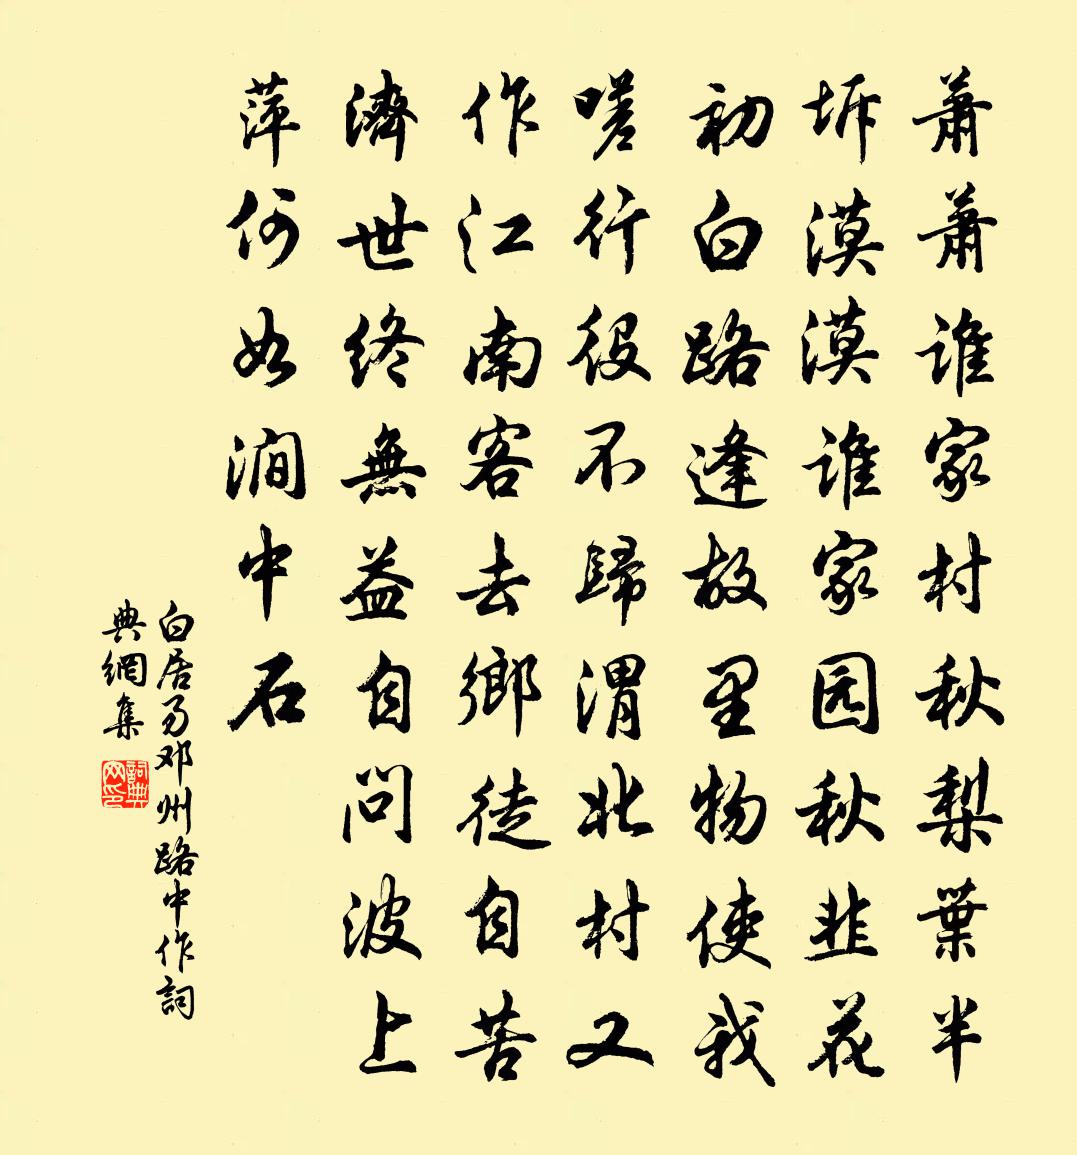 蕭蕭誰家村秋梨葉半
坼漠漠誰家园秋韭花
初白路逢故里物使我
嗟行役不歸渭北村又
作江南客去鄉徒自苦
濟世終無益自問波上
萍何如澗中石
白居易邓州路中作詞
典網集
詞典
网印